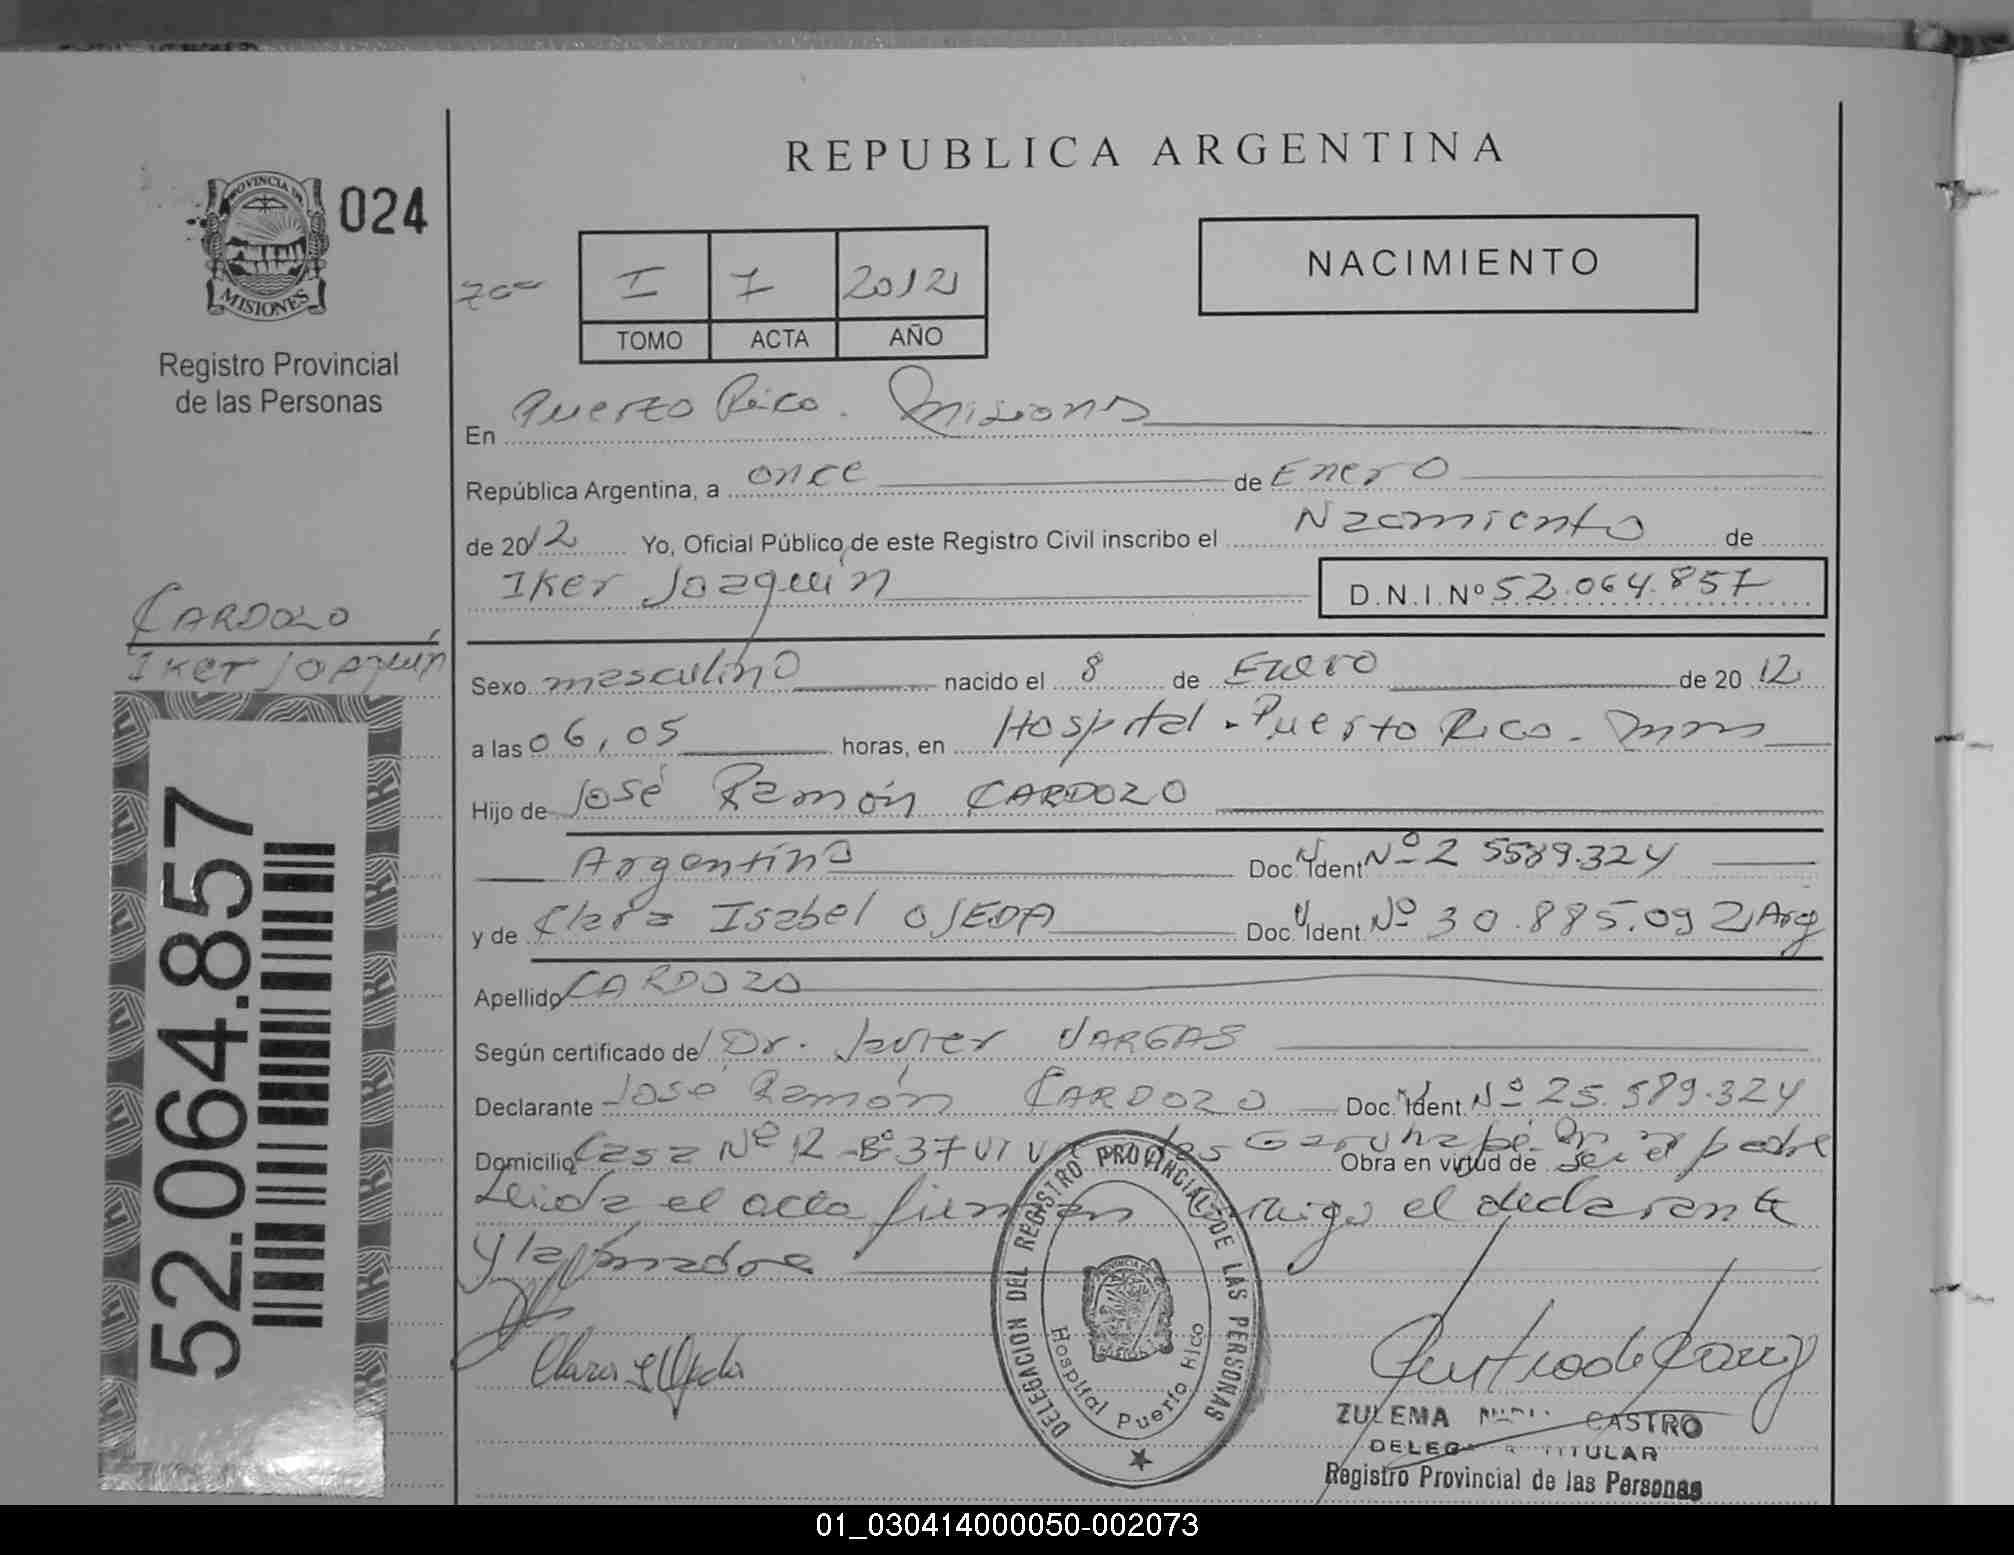 REPUBLICA ARGENTINA
PROVINCIA DE
MISIONES
024
Registro Provincial
de las Personas
I 7 2012
TOMO ACTA AÑO
NACIMIENTO
En Puerto Rico. Misiones
República Argentina, a once de Enero
de 2012 Yo, Oficial Público de este Registro Civil inscribo el Nacimiento de
Iker Joaquín D.N.I.Nº 52.064.857
CARDOZO
Iker Joaquín
Sexo masculino nacido el 8 de Enero de 2012
a las 06,05 horas, en Hospital - Puerto Rico - Mnes
Hijo de José Ramón CARDOZO
Argentino Doc. Ident Nº 25589.324
y de Clara Isabel OJEDA Doc. Ident. Nº 30.885.092 Arg
Apellido CARDOZO
Según certificado del Dr. Javier VARGAS
Declarante José Ramón CARDOZO Doc. Ident. Nº 25.589.324
Domicilio Casa Nº 12 - Bº 37 Garuhapé Obra en virtud de ser el padre
Leida el acta firman conmigo el declarante
y la madre
Clara I Ojeda
52.064.857
DELEGACION DEL REGISTRO PROVINCIAL DE LAS PERSONAS
Hospital Puerto Rico
ZULEMA CASTRO
TITULAR
Registro Provincial de las Personas
01_030414000050-002073